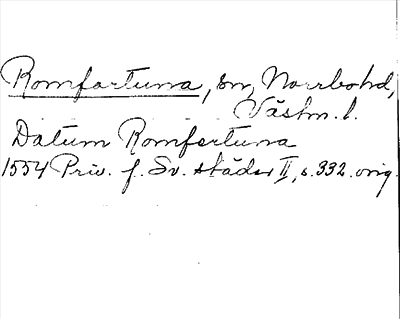 Romfartuna, sn, Norrbohd,
Västm. l.
Datum Romfertuna
1554 Priv. f. Sv. städer II, s. 332. orig.